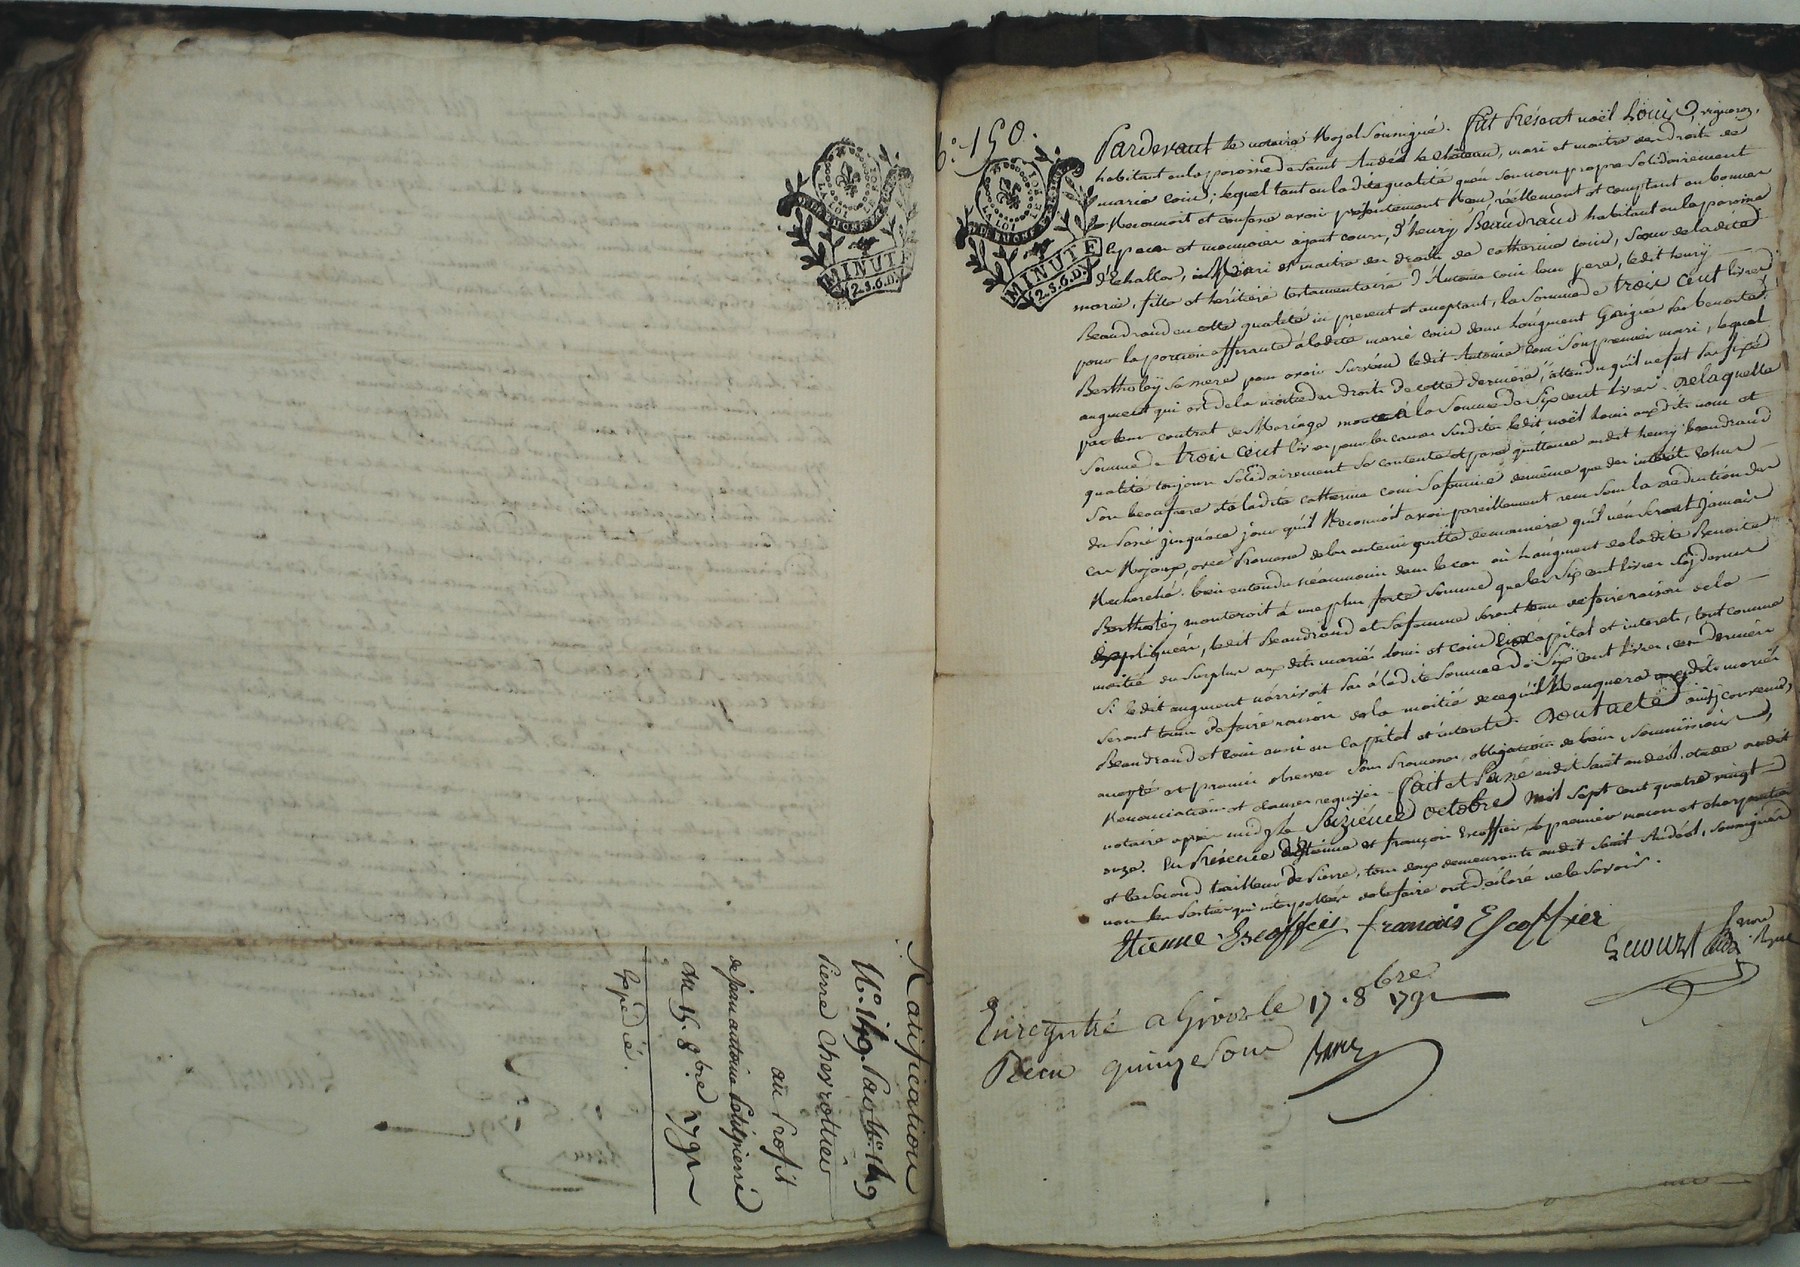 LA LOI ET LE ROI
MINUTE
2.s.6.D.
Ratification
N.° 149. 149
Pierre Cheyrottier
au Profit
de jean antoine
du 15. 8.bre 1791
Expedié.
150.
LA LOI ET LE ROI
MINUTE
2.s.6.D.
Pardevant le notaire Royal soussigné. fut Présent noël Louis, vigneron,
habitant en la paroisse de saint Andéol le chateau, mari et maitre des droits de
marie coin; lequel tant en ladite qualité qu'en son nom propre solidairement
Reconnoit et confesse avoir présentement Reçu, réellement et comptant en bonnes
Especes et monnoies ayant cours, d'henry Beaudrand habitant en la paroisse
d'Echallas, Mari et maitre des droits de catherine coin, Sœur de ladite
marie, fille et héritiere testamentaire d'Antoine coin leur pere, ledit henry
Beaudrand en cette qualité ici present et acceptant, la somme de trois Cent livres
pour la portion afferante à ladite marie coin dans l'augment Gagné par benoite
Bertholey sa mere pour avoir survécu ledit Antoine coin son premier mari, lequel
augment qui est de la moitié des droits de cette derniere, attendu qu'il ne fut pas fixé
par leur contrat de Mariage monte à la somme de six cent livres. De laquelle
somme de trois cent livres pour les causes susdites ledit noël louis auxdits nom et
qualité toujours solidairement se contente et passe quittance audit henry beaudrand
son beaufrere et à ladite catherine coin sa femme de même que des intérêts échus
du passé jusqu'à ce jour qu'il Reconnoit avoir pareillement reçu sous la déduction des
cas Royaux, avec Promesse de les en tenir quitte de maniere qu'ils n'en seront Jamais
Recherchés. bien entendu néanmoins dans le cas où l'augment de ladite Benoite
Bertholey monteroit à une plus forte somme que les six cent livres cy dessus
expliquées, ledit Beaudrand et sa femme seront tenus de faire raison de la
moitié du surplus aux dits mariés louis et coin en capital et interets, tout comme
si ledit augment n'arrivoit pas à ladite somme de six cent livres, ces derniers
seront tenus de faire raison de la moitié de ce qu'il Manquera auxdits mariés
Beaudrand et coin aussi en Capital et interets. Dont acte ainsi convenu,
accepté et promis observer sous Promesses, obligation de biens, soumissions,
Renonciations et clauses requises. fait et Passé audit saint andéol, étude dudit
notaire après midy le Seizieme octobre mil sept cent quatre vingt
onze. En Présence d'Etienne et françois Escoffier, le premier maçon et charpentier
et le second tailleur de Pierre, tous deux demeurants audit saint Andéol, soussignés
non les Parties qui interpellées de le faire ont déclaré ne le savoir.
Etienne Escoffier francois Escoffier
Enregistré a Givors le 17. 8bre 1791
Recu quinze sous